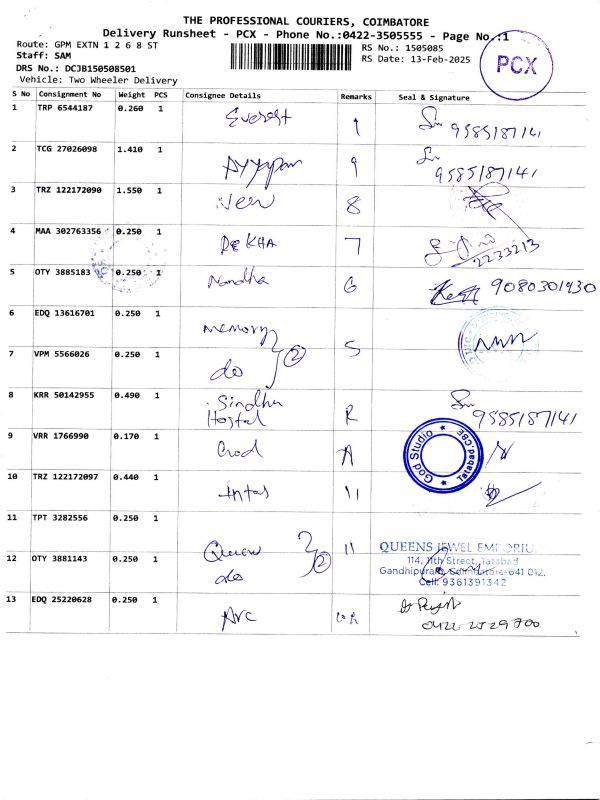 THE PROFESSIONAL COURIERS, COIMBATORE
Delivery Runsheet - PCX - Phone No.:0422-3505555 - Page No.:1
Route: GPM EXTN 1 2 6 8 ST
RS No.: 1505085
Staff: SAM
RS Date: 13-Feb-2025
PCX
DRS No.: DCJB150508501
Vehicle: Two Wheeler Delivery
S No Consignment No Weight PCS Consignee Details Remarks Seal & Signature
1 TRP 6544187 0.260 1 Everest 9585187141
2 TCG 27026098 1.410 1 Ayyapan 9 9585187141
3 TRZ 122172090 1.550 1 8
4 MAA 302763356 0.250 1 REKHA 7 2233213
5 OTY 3885183 0.250 1 Nandha 6 9080301930
6 EDQ 13616701 0.250 1 memory 5
7 VPM 5566026 0.250 1 do 2
8 KRR 50142955 0.490 1 Sindhu Hostel R 9585187141
9 VRR 1766990 0.170 1 A God Studio Tatabad, CBE
10 TRZ 122172097 0.440 1 Intas 11
11 TPT 3282556 0.250 1 Queen 2 11 QUEENS JEWEL EMPORIU
12 OTY 3881143 0.250 1 do 114, 11th Street, Tatabad
Gandhipuram, Coimbatore-641 012.
Cell: 9361391342
13 EDQ 25220628 0.250 1 Arc 0422 2529700